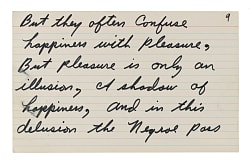 9
But they often Confuse
happiness with Pleasure,
But Pleasure is only an
illusion, A shadow of
happiness, and in this
delusion the Negroe pass